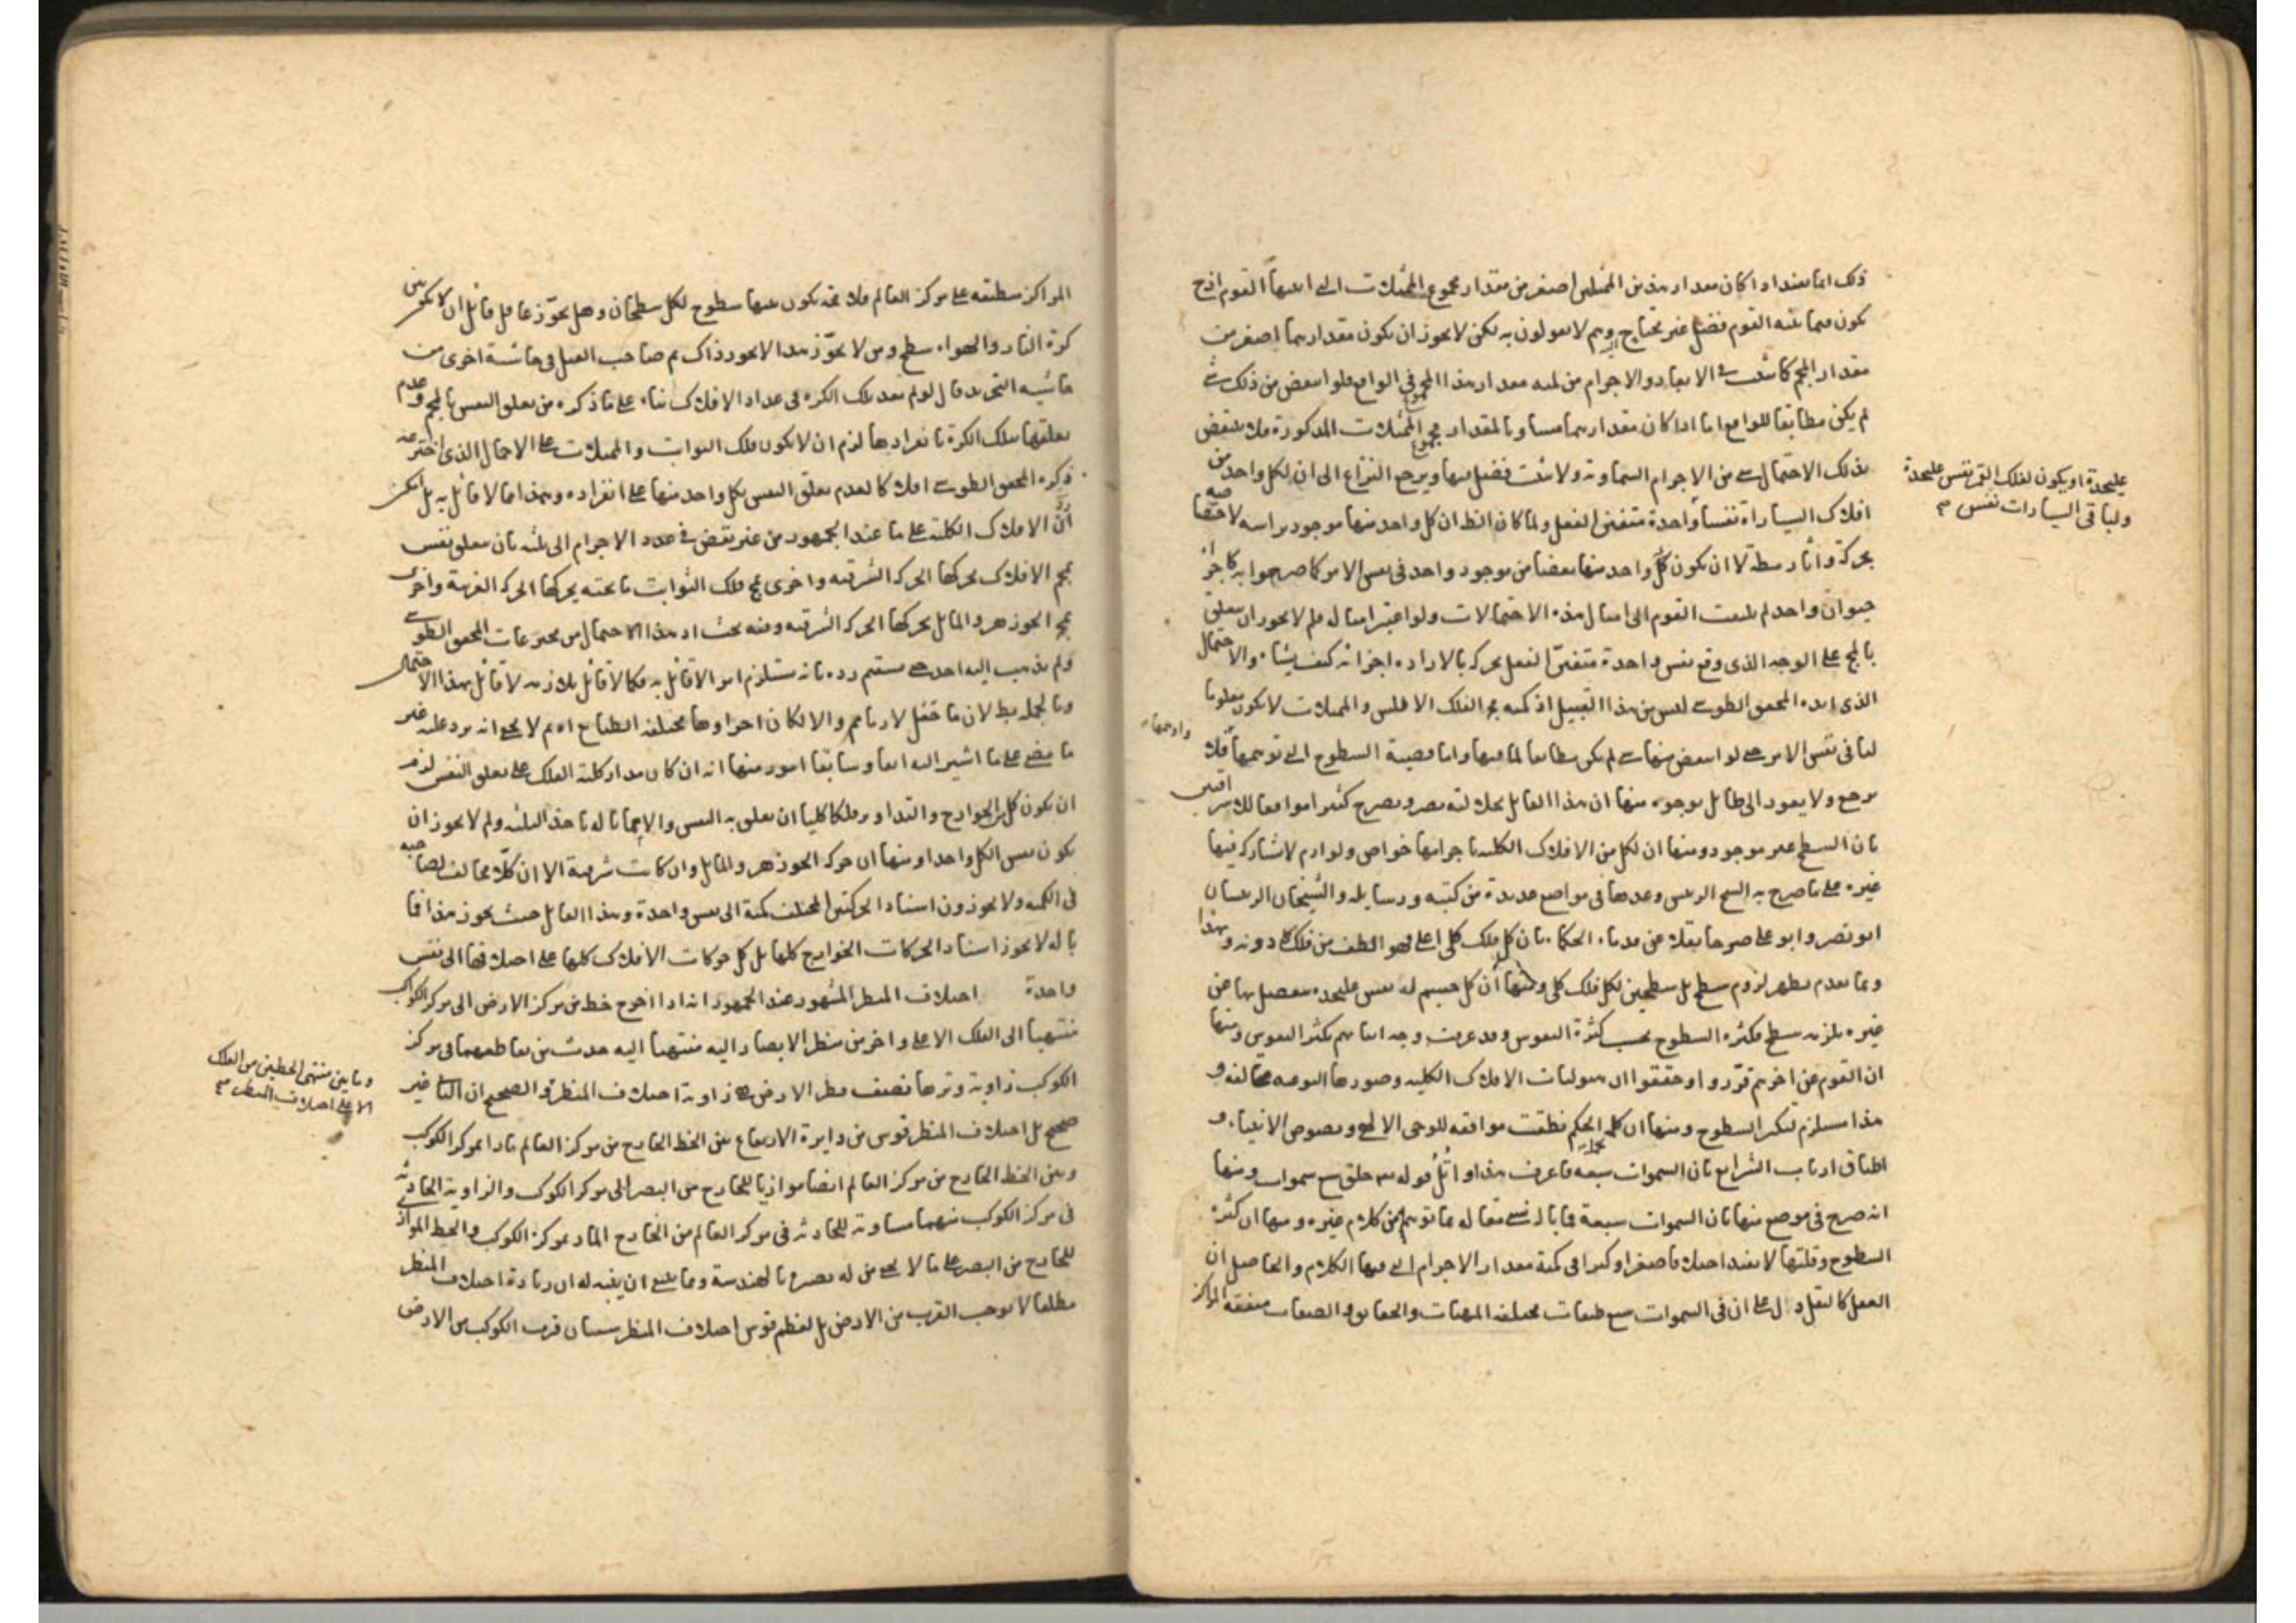 ذلك انما يفيد اذا كان مقدار هذين الممثلين اصغر من مقدار مجموع الممثلات التي اثبتها القوم اذ ح
يكون فيما اثبته القوم فضل غير محتاج اليه وهم لا يقولون به لكن لا يجوز ان يكون مقدارهما اصغر من
مقدار المجموع كما ثبت في الابعاد والاجرام من ان مقدار هذا المجموع في الواقع فلو انتقض من ذلك شئ
لم يكن مطابقا للواقع اما اذا كان مقدارهما مساويا لمقدار مجموع الممثلات المذكورة فلا ينتقض
بذلك الاحتمال شئ من الاجرام السماوية ولا يثبت فضل فيها ويرجع النزاع الى ان لكل واحد من
افلاك السيارة نفسا واحدة متفنن الفعل ولما كان الظ ان كل واحد منها موجود براسه لاختصاصه
بحركة وآثار لا ان يكون كل واحد منها بعضا من موجود واحد في نفس الامر كما صرحوا به كاجزاء
حيوان واحد لم يلتفت القوم الى امثال هذه الاحتمالات ولو اعتبر امثاله فلم لا يجوز ان يتعلق
بالجميع على الوجه الذي وقع نفس واحدة متفنن الفعل يحركه بالارادة اجزائه كيف يشاء والاحتمال
الذي ابداه المحقق الطوسي ليس من هذا القبيل اذ كمية حجم الفلك الاطلس والممثلات لا يكون معلوما
لنا في نفس الامر حتى لو انتقض منها شئ لم يكن مطابقا لما فيها واما قضية السطوح التي توهمها فلا
يرجع ولا يعود الى طائل بوجوه منها ان هذا القائل بجلالته يصر ويصرح كثيرا موافقا للاشراقيين
بان السطح غير موجود ومنها ان لكل من الافلاك الكلية باجرامها خواص ولوازم لا يشاركه فيها
غيره على ما صرح به الشيخ الرئيس وعدها في مواضع عديدة من كتبه ورسايله والشيخان الرئيسان
ابو نصر وابو علي صرحا نقلا عن قدماء الحكماء بان كل فلك كلي اعلى فهو الطف من فلك دونه وبهذا
وبما تقدم يظهر لزوم سطح بل سطحين لكل فلك كلي ومنها ان كل جسم له نفس عليحدة منفصل بها عن
غيره يلزمه سطح فكثرة السطوح بحسب كثرة النفوس وقد عرفت وجه اثباتهم تكثر النفوس ومنها
ان القوم عن اخرهم قرروا وحققوا ان هيوليات الافلاك الكلية وصورها النوعية متخالفة و
هذا مستلزم لتكثر السطوح ومنها ان كلمة الحكم نطقت موافقة للوحي الالهي ونصوص الانبياء و
اطباق ارباب الشرايع بان السموات سبعة فاعرف هذا واتل قوله تعه خلق سبع سموات ومنها
انه صرح في موضع منها بان السموات سبعة فما باله نسي مقاله بما توهم من كلام غيره ومنها ان كثرة
السطوح وقلتها لا يفيد اختلافا صغرا وكبرا في كمية مقدار الاجرام التي فيها الكلام والحاصل ان
العقل كالنقل دال على ان في السموات سبع طبقات مختلفة المهيات والحقايق والصفات متفقة المراكز
عليحدة او يكون لفلك القمر نفس عليحدة
ولباقي السيارات نفس صح
المراكز منطبقة على مركز العالم فلا محة يكون بينها سطوح لكل سطحان وهل يجوز عاقل قائل ان لا يكون بين
كرة النار والهواء سطح ومن لا يجوز هذا لا يجوز ذاك ثم صاحب القيل في حاشية اخرى من
حاشيه التحرير قال لو لم يعد تلك الكرة في عداد الافلاك بناء على ما ذكره من تعلق النفس بالجميع وعدم
تعلقها بتلك الكرة بانفرادها لزم ان لا يكون فلك الثوابت والممثلات على الاحتمال الذي اخترعه
ذكره المحقق الطوسي افلاكا لعدم تعلق النفس بكل واحد منها على انفراده وهذا مما لا قائل به بل امكن
رد الافلاك الكلية على ما عند الجمهور من غير نقض في عدد الاجرام الى ثلثة بان يتعلق نفس
بجميع الافلاك يحركها الحركة الشرقية واخرى بمجموع فلك الثوابت وما تحته يحركها الحركة الغربية واخرى
بمجموع الجوزهر والمايل يحركها الحركة الشرقية وفيه بحث اذ هذا الاحتمال من مخترعات المحقق الطوسي
ولم يذهب اليه احد حتى يستقيم رده بانه يستلزم امرا لا قائل به فكما لا قائل بلازمه لا قائل بهذا الاحتمال
وبالجملة
ما مضى على ما اشير اليه انفا وسابقا امور منها انه ان كان مدار كلية الفلك على تعلق النفس لزم
ان يكون كل من الخوارج والتداوير فلكا كليا ولم لا يجوز ان
يكون نفس الكل واحدا ومنها ان حركة الجوزهر والمايل وان كانت شرقية الا ان كلا مخالف لصاحبه
في الكمية ولا يجوزون اسناد الحركتين المختلفتين كمية الى نفس واحدة وهذا القائل حيث يجوز هذا فما
باله لا يجوز اسناد الحركات الخوارج كلها بل كل حركات الافلاك كلها على اختلافها الى نفس
واحدة اختلاف المنظر المشهور عند الجمهور انه اذا اخرج خط من مركز الارض الى مركز الكوكب
منتهيا الى الفلك الاعلى واخر من منظر الابصار اليه منتهيا اليه حدث من تقاطعهما في مركز
الكوكب زاوية وترها نصف قطر الارض هي زاوية اختلاف المنظر والصحيح ان غير
صحيح بل اختلاف المنظر قوس من دايرة الارتفاع بين الخط الخارج من مركز العالم مارا بمركز الكوكب
وبين الخط الخارج من مركز العالم ايضا موازيا للخارج من البصر الى مركز الكوكب والزاوية الحادثة
في مركز الكوكب منهما مساوية للحادثة في مركز العالم من الخارج المار بمركز الكوكب والخط الموازي
للخارج من البصر على ما لا يخفى من له بصيرة بالهندسة ومما ينبغي ان يتنبه له ان زيادة اختلاف المنظر
مطلقا لا يوجب القرب من الارض بل لعظم قوس اختلاف المنظر سببان قرب الكوكب من الارض
وما بين منتهى الخطين من الفلك
الاعلى اختلاف المنظر صح